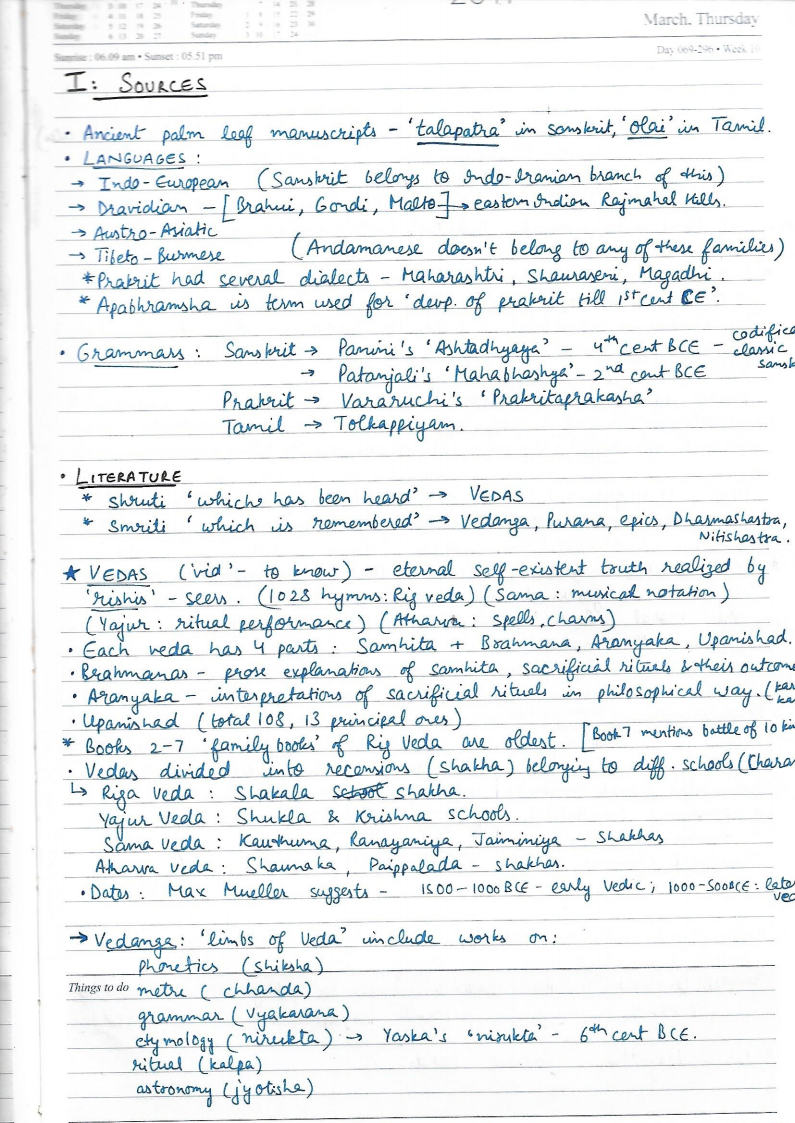 March, Thursday
Sunrise : 06.09 am • Sunset : 05.51 pm
Day 069-296 • Week 10
I: SOURCES
• Ancient palm leaf manuscripts - 'talapatra' in sanskrit, 'olai' in Tamil.
• LANGUAGES :
→ Indo-European (Sanskrit belongs to Indo-Iranian branch of this)
→ Dravidian - [Brahui, Gondi, Malto] → eastern Indian Rajmahal Hills.
→ Austro-Asiatic
→ Tibeto-Burmese (Andamanese doesn't belong to any of these families)
* Prakrit had several dialects - Maharashtri, Shauraseni, Magadhi.
* Apabhramsha is term used for 'devp. of prakrit till 1st cent CE'.
• Grammars : Sanskrit → Panini's 'Ashtadhyaya' - 4th cent BCE - codified
classic
Sansk
→ Patanjali's 'Mahabhashya' - 2nd cent BCE
Prakrit → Vararuchi's 'Prakritaprakasha'
Tamil → Tolkappiyam.
• LITERATURE
* Shruti 'which has been heard' → VEDAS
* Smriti 'which is remembered' → Vedanga, Purana, epics, Dharmashastra,
Nitishastra.
★ VEDAS ('vid' - to know) - eternal self-existent truth realized by
'rishis' - seers. (1028 hymns: Rig veda) (Sama : musical notation)
(Yajur : ritual performance) (Atharva : spells, charms)
• Each veda has 4 parts : Samhita + Brahmana, Aranyaka, Upanishad.
• Brahmanas - prose explanations of samhita, sacrificial rituals & their outcome
• Aranyaka - interpretations of sacrificial rituals in philosophical way.
• Upanishad (total 108, 13 principal ones)
* Books 2-7 'family books' of Rig Veda are oldest. [Book 7 mentions battle of 10 kin
• Vedas divided into recensions (shakha) belonging to diff. schools (Chara
↳ Riga Veda : Shakala school shakha.
Yajur Veda : Shukla & Krishna schools.
Sama Veda : Kauthuma, Ranayaniya, Jaiminiya - Shakhas
Atharva veda : Shaunaka, Paippalada - shakhas.
• Dates : Max Mueller suggests - 1500-1000 BCE - early Vedic ; 1000-500BCE : late
ved
→ Vedanga : 'limbs of Veda' include works on :
phonetics (shiksha)
Things to do
metre (chhanda)
grammar (vyakarana)
etymology (nirukta) → Yaska's 'nirukta' - 6th cent BCE.
ritual (kalpa)
astronomy (jyotisha)